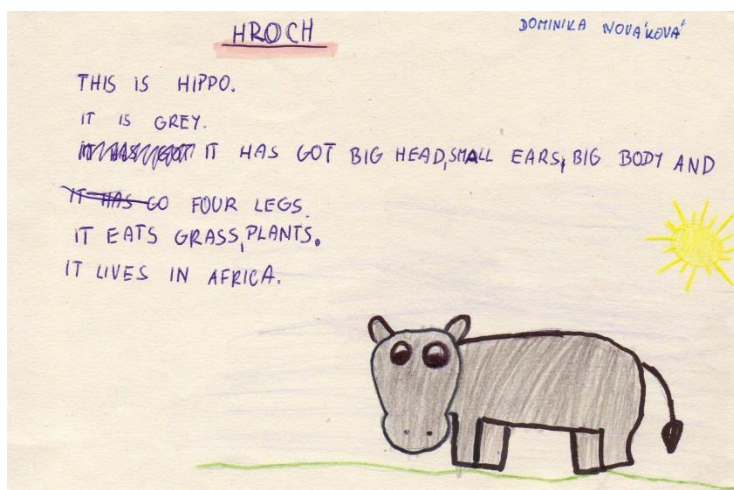 HROCH
DOMINIKA NOVÁKOVÁ
THIS IS HIPPO.
IT IS GREY.
IT HAS GOT IT HAS GOT BIG HEAD, SMALL EARS, BIG BODY AND
IT HAS GO FOUR LEGS.
IT EATS GRASS, PLANTS.
IT LIVES IN AFRICA.